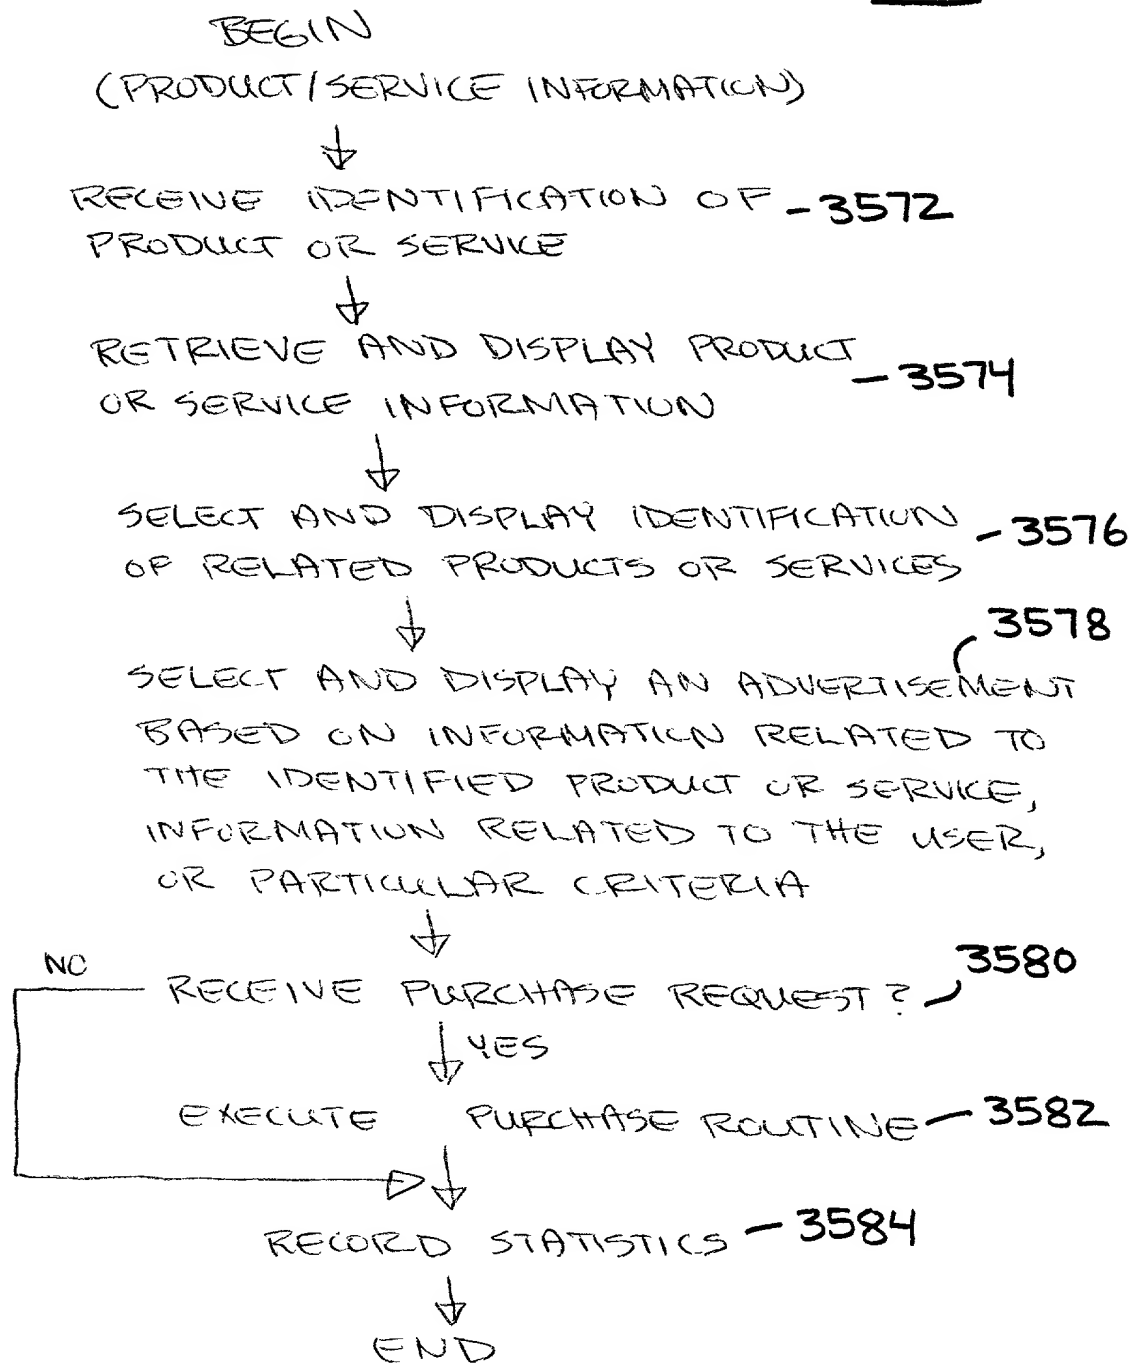 BEGIN
(PRODUCT/SERVICE INFORMATION)
RECEIVE IDENTIFICATION OF - 3572
PRODUCT OR SERVICE
RETRIEVE AND DISPLAY PRODUCT
OR SERVICE INFORMATION - 3574
SELECT AND DISPLAY IDENTIFICATION - 3576
OF RELATED PRODUCTS OR SERVICES
3578
SELECT AND DISPLAY AN ADVERTISEMENT
BASED ON INFORMATION RELATED TO
THE IDENTIFIED PRODUCT OR SERVICE,
INFORMATION RELATED TO THE USER,
OR PARTICULAR CRITERIA
NO RECEIVE PURCHASE REQUEST? 3580
YES
EXECUTE PURCHASE ROUTINE - 3582
RECORD STATISTICS - 3584
END